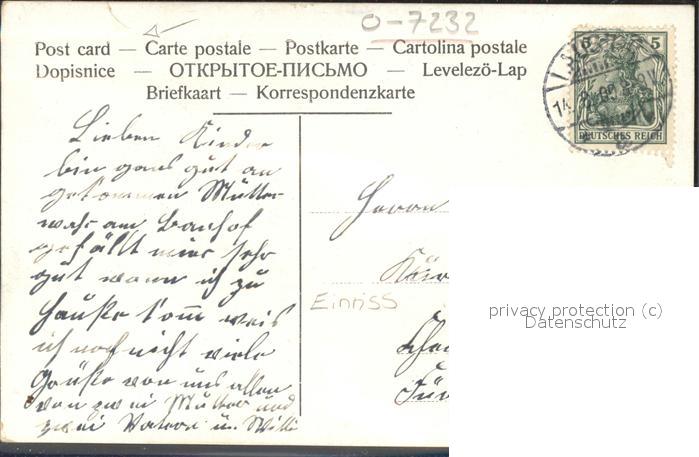 O-7232
Post card — Carte postale — Postkarte — Cartolina postale
Dopisnice — ОТКРЫТОЕ-ПИСЬМО — Levelezö-Lap
Briefkaart — Korrespondenzkarte
5
DEUTSCHES REICH
Lieben Kinder
bin gans gut an
gekommen Mutter
wahr am Banhof
gefällt mier sehr
gut wann ich zu
Hauße komm weis
ich noch nicht viele
Grüße von uns allen
von zwei Mutter und
zwei Vatern u. Willi
Herrn
Einriss
privacy protection (c)
Datenschutz